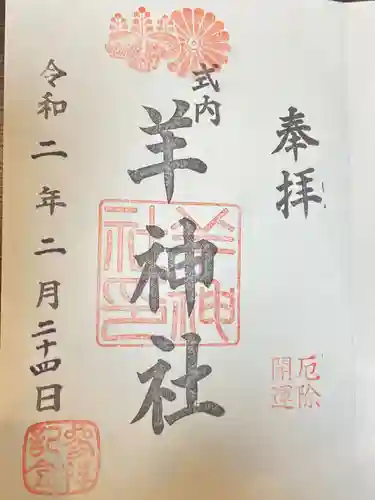 奉拝
厄除
開運
式内
羊神社
羊神社之印
令和二年二月二十四日
参拝記念